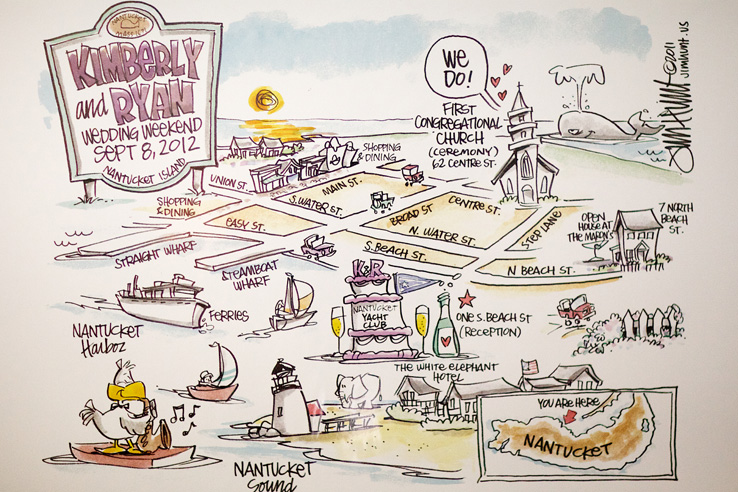 NANTUCKET
KIMBERLY
and RYAN
WEDDING WEEKEND
SEPT 8, 2012
NANTUCKET ISLAND
WE
DO!
FIRST
CONGREGATIONAL
CHURCH
(CEREMONY)
62 CENTRE ST.
©2011
JIMHUNT.US
Jim Hunt
SHOPPING
& DINING
UNION ST.
MAIN ST.
S. WATER ST.
BROAD ST
CENTRE ST.
SHOPPING
& DINING
EASY ST.
N. WATER ST.
STEP LANE
OPEN
HOUSE AT
THE MARON'S
7 NORTH
BEACH
ST.
STRAIGHT WHARF
S. BEACH ST.
N BEACH ST.
STEAMBOAT
WHARF
K&R
NANTUCKET
YACHT
CLUB
FERRIES
ONE S. BEACH ST
(RECEPTION)
NANTUCKET
Harbor
THE WHITE ELEPHANT
HOTEL
YOU ARE HERE
NANTUCKET
NANTUCKET
Sound